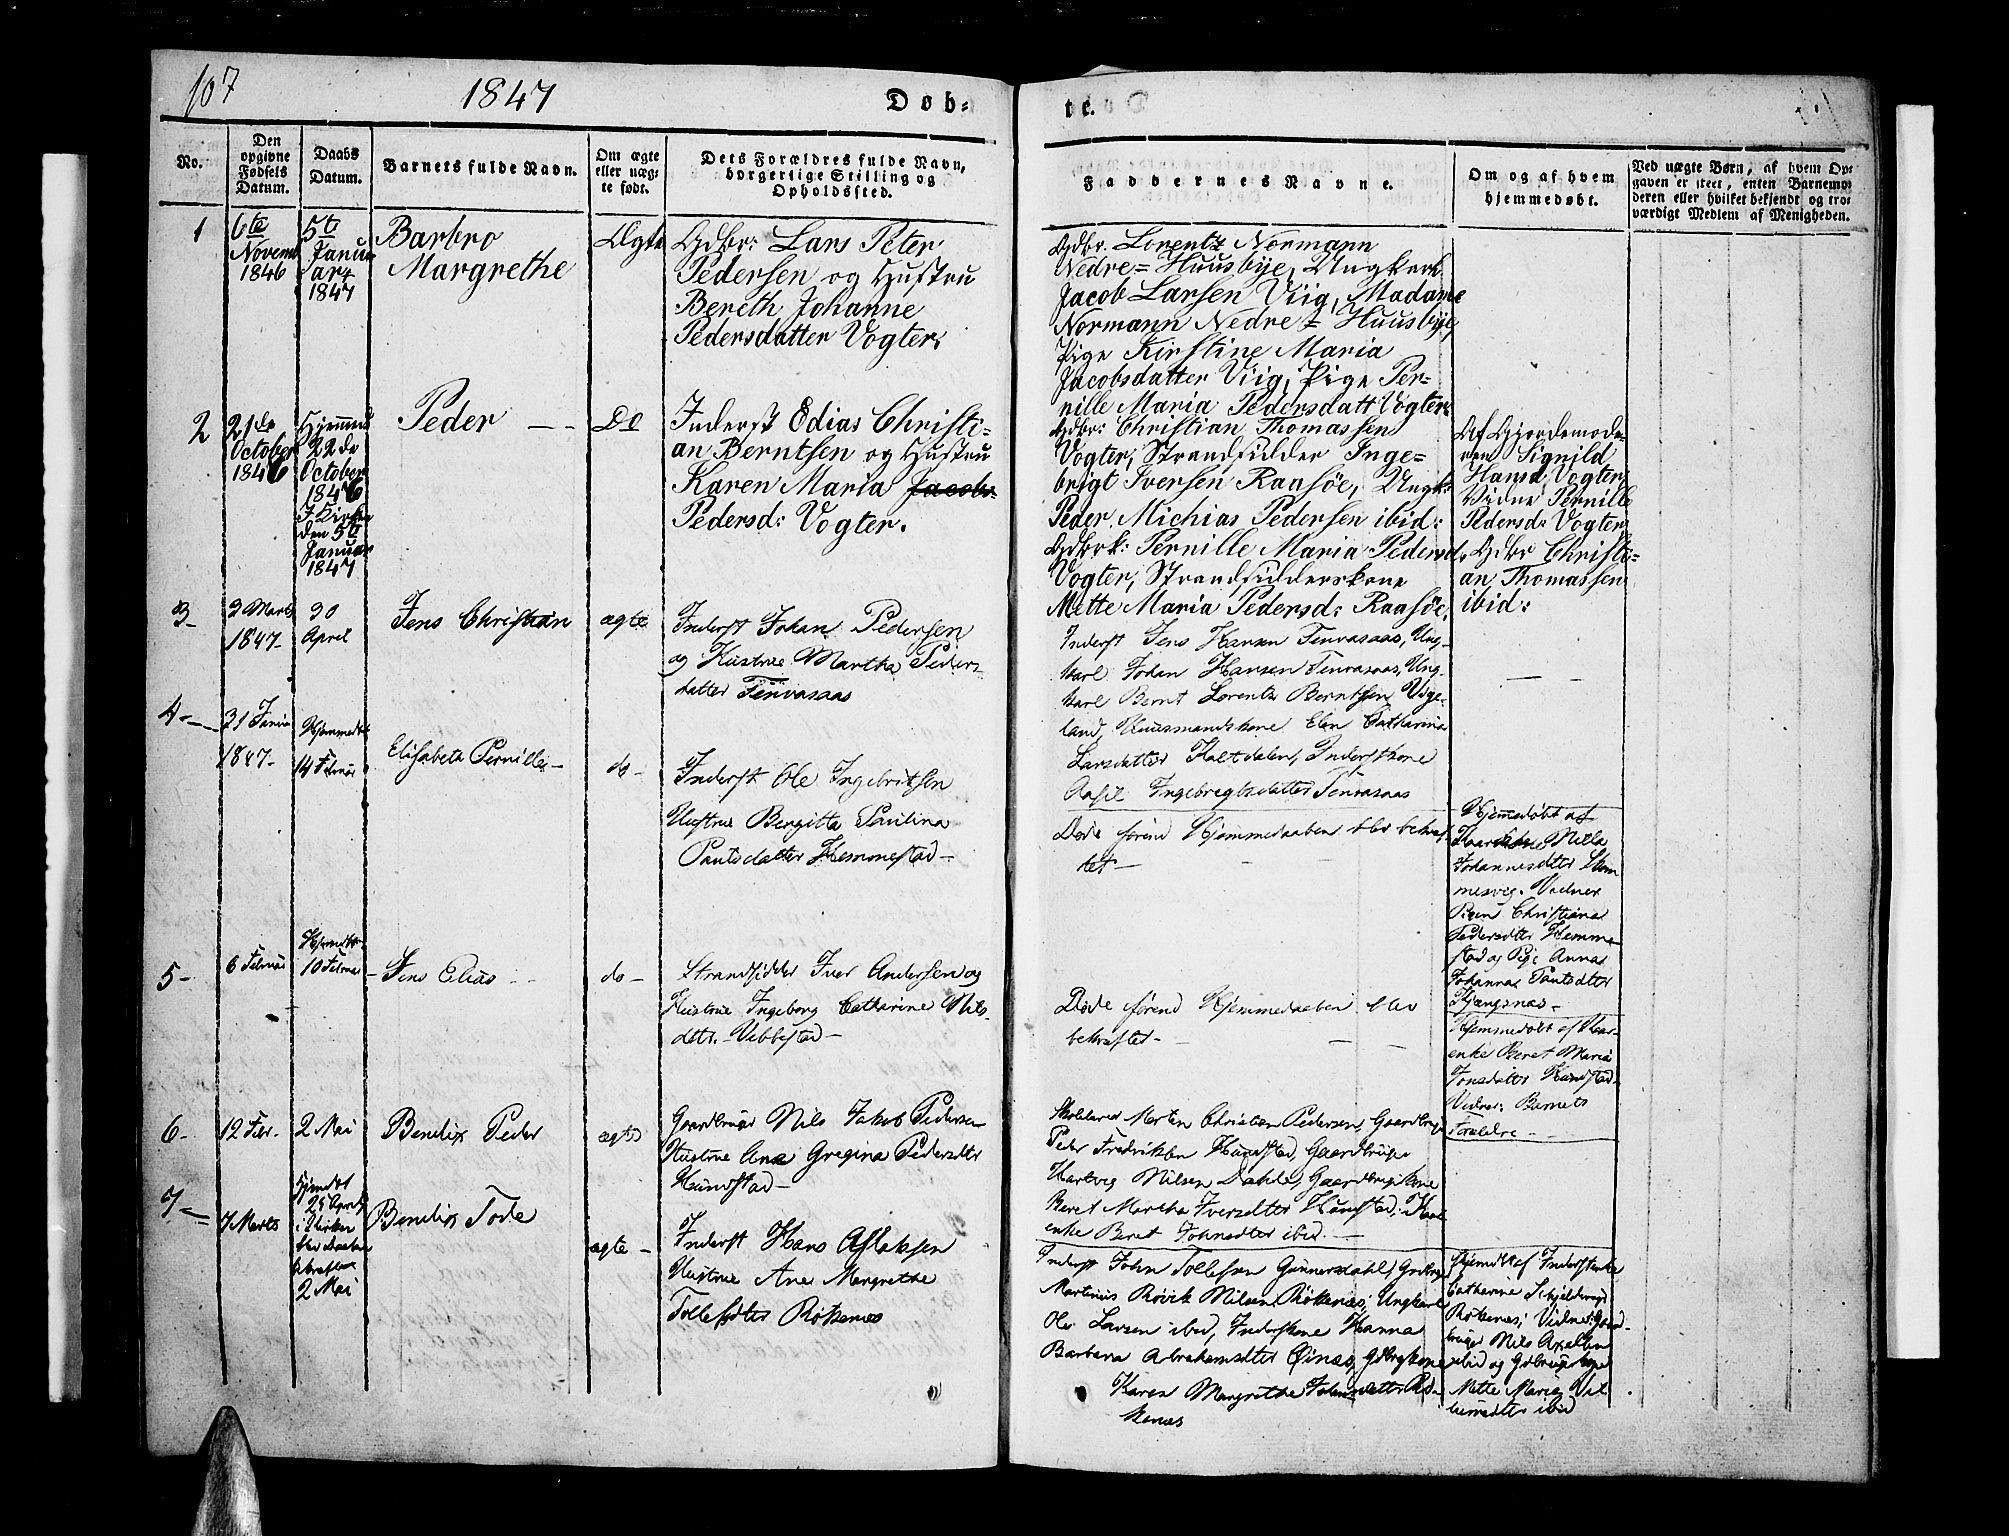 107
1847
Døb=
te.
No.
Den
opgivne
Fødsels
Datum.
Daabs
Datum.
Barnets fulde Navn.
Om ægte
eller uæg=
te født.
Dets Forældres fulde Navn,
borgerlige Stilling og
Opholdssted.
Faddernes Navne.
Om og af hvem
hjemmedøbt.
Ved uægte Børn, af hvem Op=
gaven er skeet, enten Barnemo=
deren eller hvilket bekjendt og tro=
værdigt Medlem af Menigheden.
1
6te
Novemb
1846
5te
Janu
ar
1847
Barbro
Margrethe
Ægte
Gdbr: Lars Peter
Pedersen og Hustru
Bereth Johanne
Pedersdatter Vogter.
Gdbr. Lorentz Normann
Nedre=Huusbye, Ungkarl
Jacob Larsen Viig, Madame
Normann Nedre=Huusbye,
Pige Kirstine Maria
Jacobsdatter Viig, Pige Per=
nille Maria Pedersdatt Vogter.
2
21de
October
1846
Hjemme
22de
October
1846
I Kirke
den 5te
Januar
1847
Peder
Do
Inderst Edias Christi=
an Berntsen og Hustru
Karen Maria Jacobs
Pedersd: Vogter.
Gdbr: Christian Thomassen
Vogter, Strandsidder Inge=
brigt Iversen Raasøe, Ungk:
Peder Michias Pedersen ibid:
Gdbrk: Pernille Maria Pedersd.
Vogter, Strandsidderskone
Mette Maria Pedersd: Raasøe.
Af Gjordemode=
ren Signild
Hansd. Vogter,
Vidne Pernille
Pedersd: Vogter,
Gdbr Christi=
an Thomassen
ibid:
3
2 Marts
1847
30
April
Jens Christian
ægte
Inderst Johan Pedersen
og Hustrue Martha Peders-
datter Tenvasaas
Inderst Jens Hansen Tenvasaas, Ung-
karl Johan Hansen Tenvasaas, Ung-
karl Bernt Lorentz Berntsen Vige-
land, Huusmandskone Elen Catharina
Larsdatter Kaltdalen, Inderstkone
Aasil Ingebregtsdatter Tenvasaas
4
31 Janua
1847
Hjemmedbt
14 Februar
Elisabeta Pernilla
do
Inderst Ole Ingebritsen
Hustrue Bergitta Paulina
Pantsdatter Hemmestad
Døde førend Hjemmedaaben blev bekræf-
tet
Hjemmedøbt af
Milla
Johannesdtter Hem
mesvig. Vidner
Christiana
Pedersdtter Hemme-
stad og Pige Anna
Johanna Pantsdtter
Kjængsnæs
5
6 Februar
Hjemdbt
10 Februar
Jens Elias
do
Strandsidder Iver Andersen og
Hustrue Ingeborg Catharine Nils-
dttr. Vebbestad
Døde førend Hjemmedaaben blev
bekræftet
Hjemmedøbt af Kaar-
enke Beret Maria
Jonsdatter Hundstad
Vidner: Barnets
Forældre
6
12 Febr.
2 Mai
Bendix Peder
ægte
Gaardbruger Nils Jakob Pedersen
Hustrue Ana Gregina Pedersdtr
Hundstad
Skolelærer Morten Christian Pedersen, Gaardbruger
Peder Fredriksen Hundstad, Gaardbruger
Hartvig Nilsen Dahle, Gaardbrugerkone
Beret Martha Iversdtter Hundstad, Kaar-
enke Beret Johnsdtter ibid
7
7 Marts
Hjemdbt
25 April
i Kirken
blev Daaben
bekræftet
2 Mai
Bendix Tode
ægte
Inderst Hans Aslaksen
Hustrue Ane Margrethe
Tollefsdtter Røkenes
Inderst John Tollefsen Gunnersdahl, Gdbruger
Martinus Røvik Nilsen Røkenæs, Ungkarl
Ole Larsen ibid, Inderstkone Hanna
Barbara Abrahamsdtter Øinæs, Gdbrgkone
Karen Margrethe Johnsdatter Rø-
kenæs
Hjemdbt af Inderstenke
Catharine Schjelderup
Røkenæs, Vidner: Gaard-
bruger Nils Axelsen
ibid og Gdbrugerkone
Mette Maria Vil
lumsdtter ibid